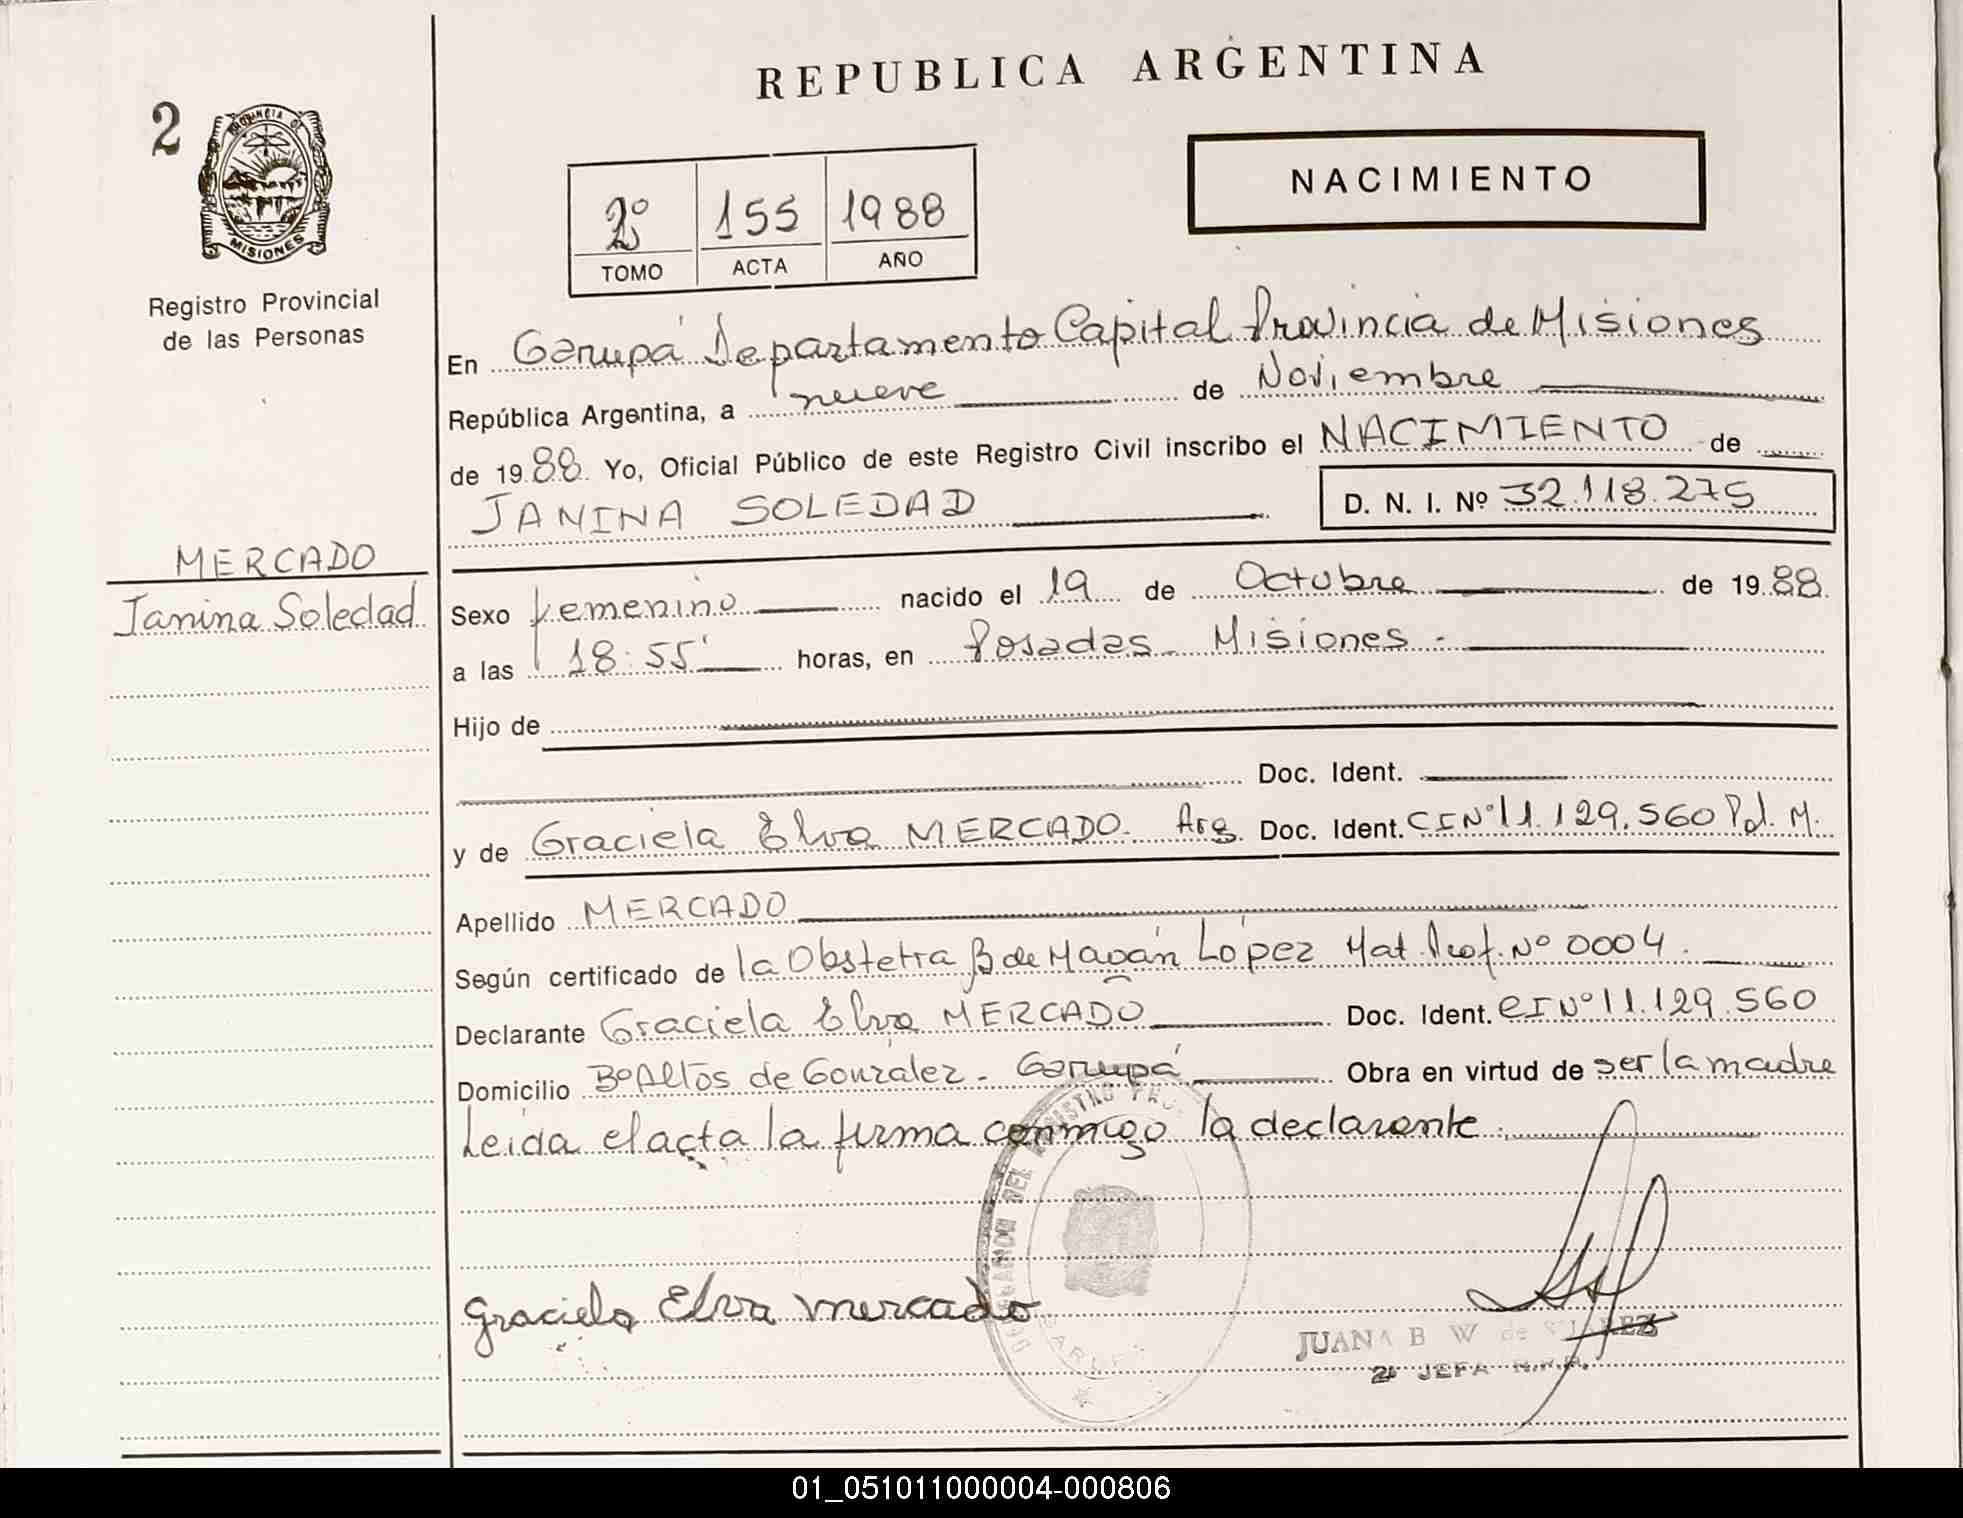 REPUBLICA ARGENTINA
2
PROVINCIA DE
MISIONES
Registro Provincial
de las Personas
2º 155 1988
TOMO ACTA AÑO
NACIMIENTO
En Garupá Departamento Capital Provincia de Misiones
República Argentina, a nueve de Noviembre
de 1988 Yo, Oficial Público de este Registro Civil inscribo el NACIMIENTO de
JANINA SOLEDAD D. N. I. Nº 32.118.275
MERCADO
Janina Soledad
Sexo femenino nacido el 19 de Octubre de 1988
a las 18:55' horas, en Posadas - Misiones -
Hijo de
Doc. Ident.
y de Graciela Elva MERCADO. Arg. Doc. Ident. CI Nº 11.129.560 Pol. M.
Apellido MERCADO
Según certificado de la Obstetra B de Magán López Mat. Prof. Nº 0004.
Declarante Graciela Elva MERCADO Doc. Ident. CI Nº 11.129.560
Domicilio Bº Altos de González - Garupá Obra en virtud de ser la madre
Leida el acta la firma conmigo la declarante.
Graciela Elva mercado
JUANA B W de
2º JEFA R.P.P.
01_051011000004-000806